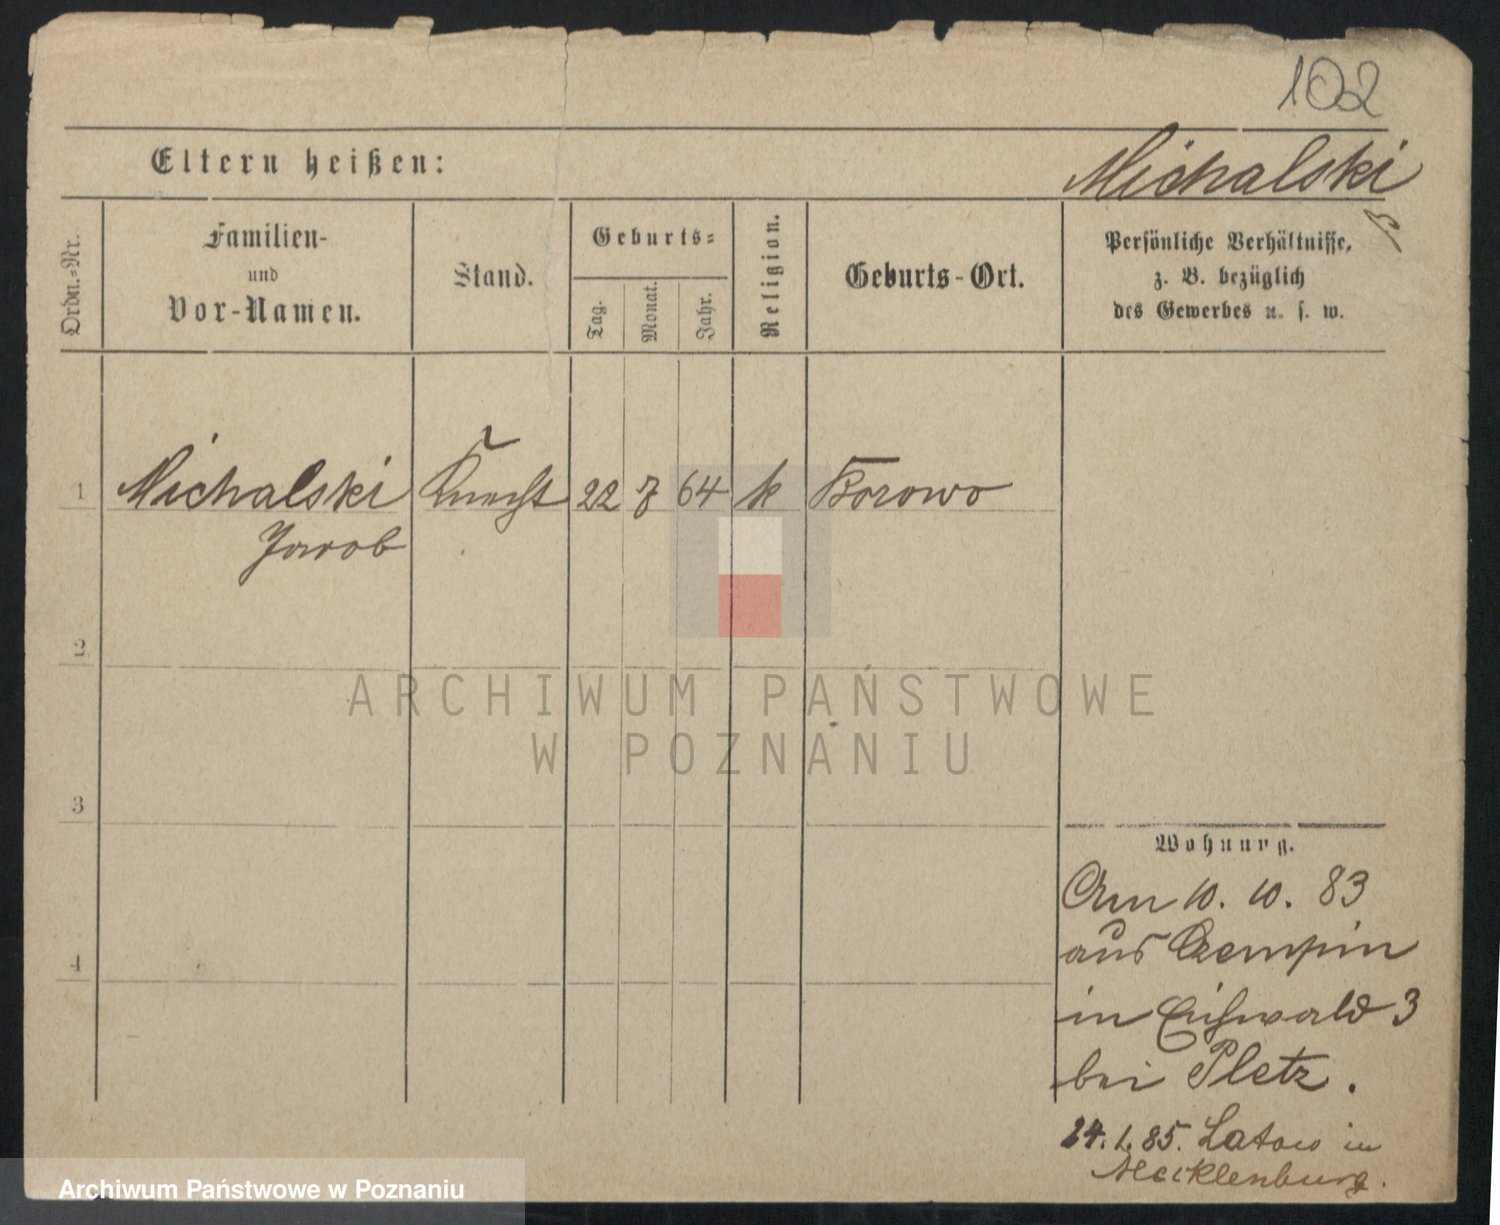 102
Eltern heißen:
Michalski
Ordn.=Nr.
Familien-
und
Vor-Namen.
Stand.
Geburts=
Tag.
Monat.
Jahr.
Religion.
Geburts-Ort.
Persönliche Verhältnisse,
z. B. bezüglich
des Gewerbes u. s. w.
1 Michalski Knecht 22 7 64 k Borowo
Jacob
2
3
4
Wohnung.
Am 10. 10. 83
aus Czempin
in Eichwald 3
bei Pletz.
24. 1. 85. Latow in
Mecklenburg.
ARCHIWUM PAŃSTWOWE
W POZNANIU
Archiwum Państwowe w Poznaniu